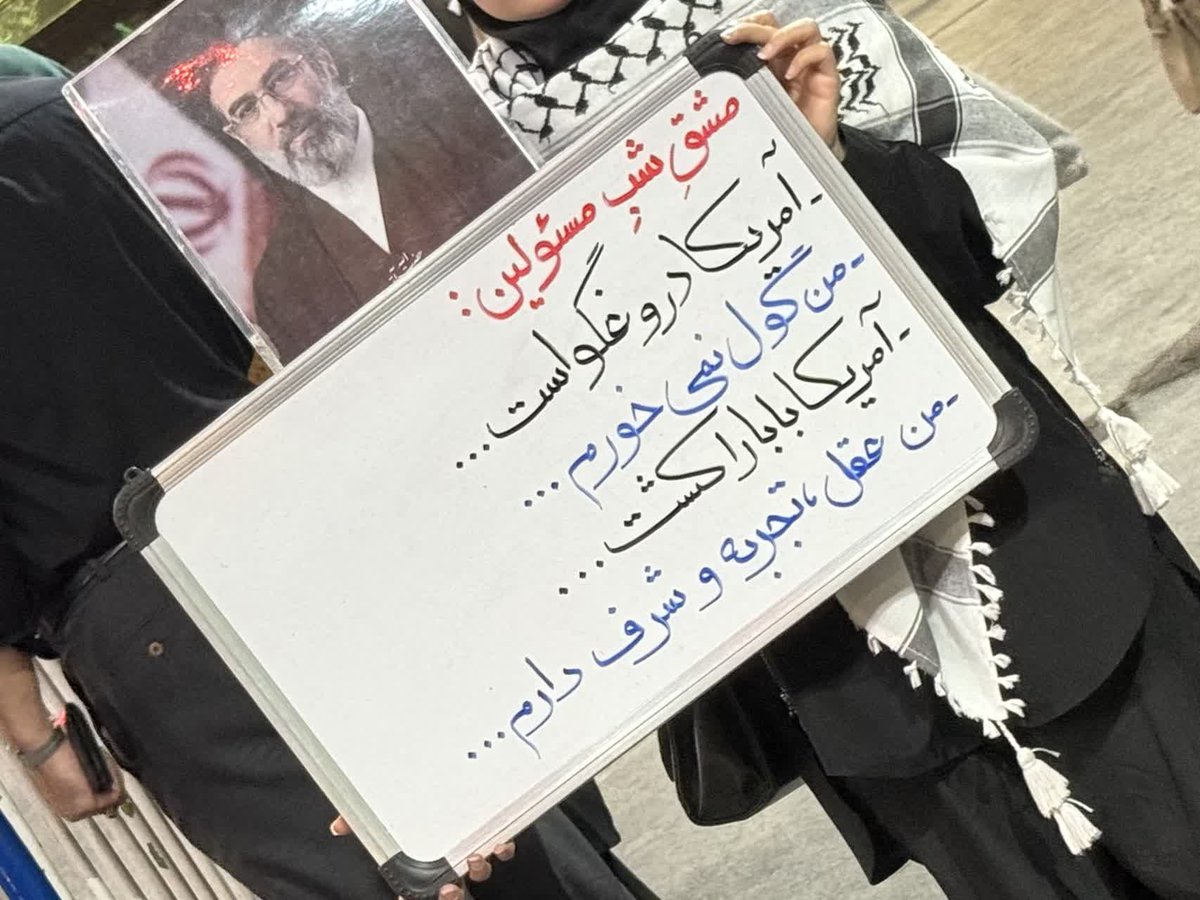 مشقِ شبِ مسئولین:
- آمریکا دروغگو است...
- من گول نمی خورم...
- آمریکا بابا را کشت...
- من عقل، تجربه و شرف دارم...